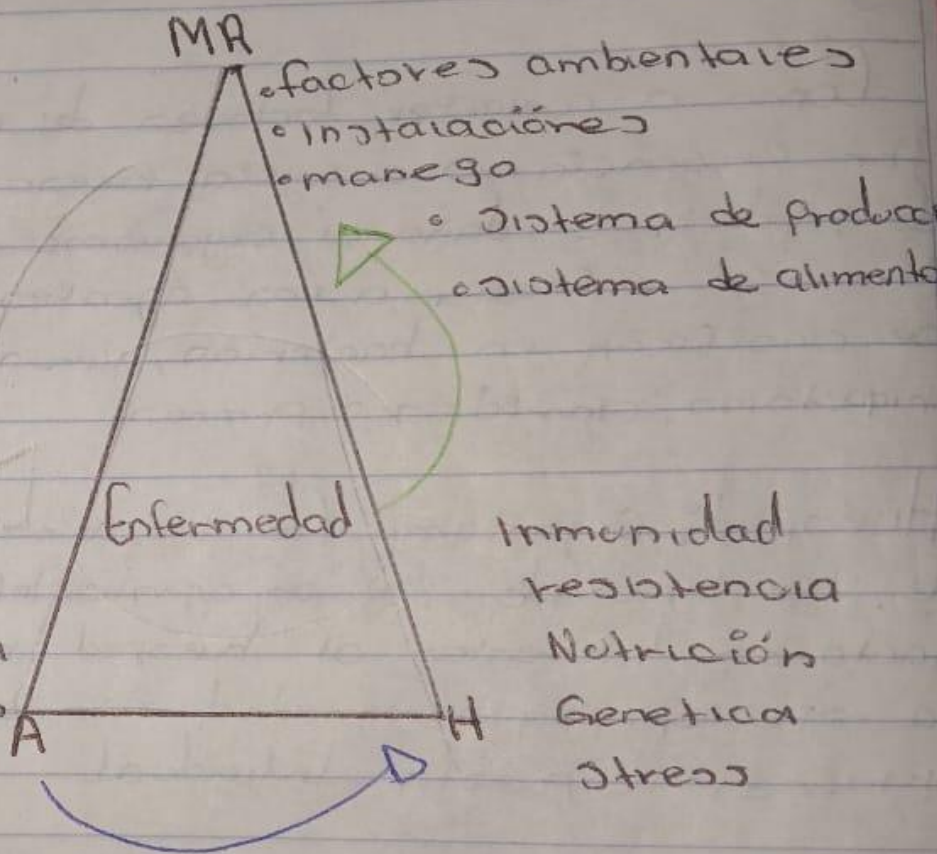 MA
•factores ambientales
•Instalaciónes
•manego
• Sistema de producc
•sistema de alimento
Enfermedad
Inmunidad
resistencia
Nutrición
A
H
Genetica
stress